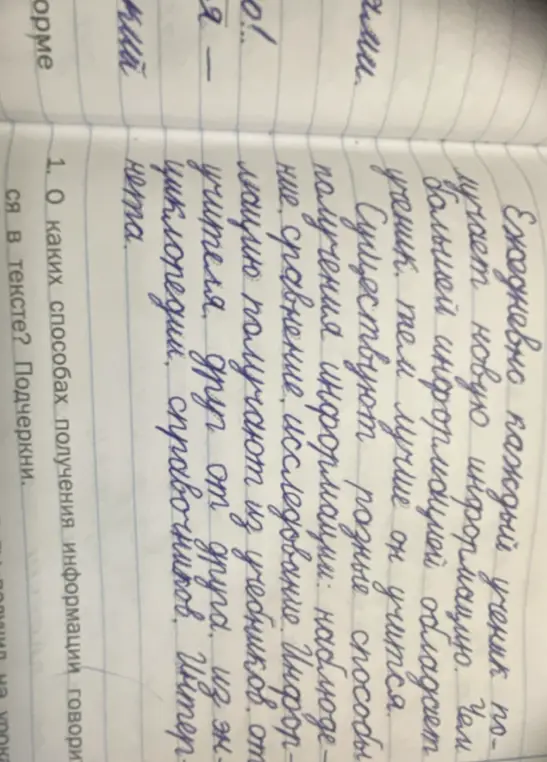 ами.
о!..
я —
кий
орме
Ежедневно каждый ученик по-
лучает новую информацию. Чем
большей информацией обладает
ученик, тем лучше он учится.
Существуют разные способы
получения информации: наблюде-
ние, сравнение, исследование. Инфор-
мацию получают из учебников, от
учителя, друг от друга, из эн-
циклопедий, справочников, Интер-
нета.
1. О каких способах получения информации говори
ся в тексте? Подчеркни.